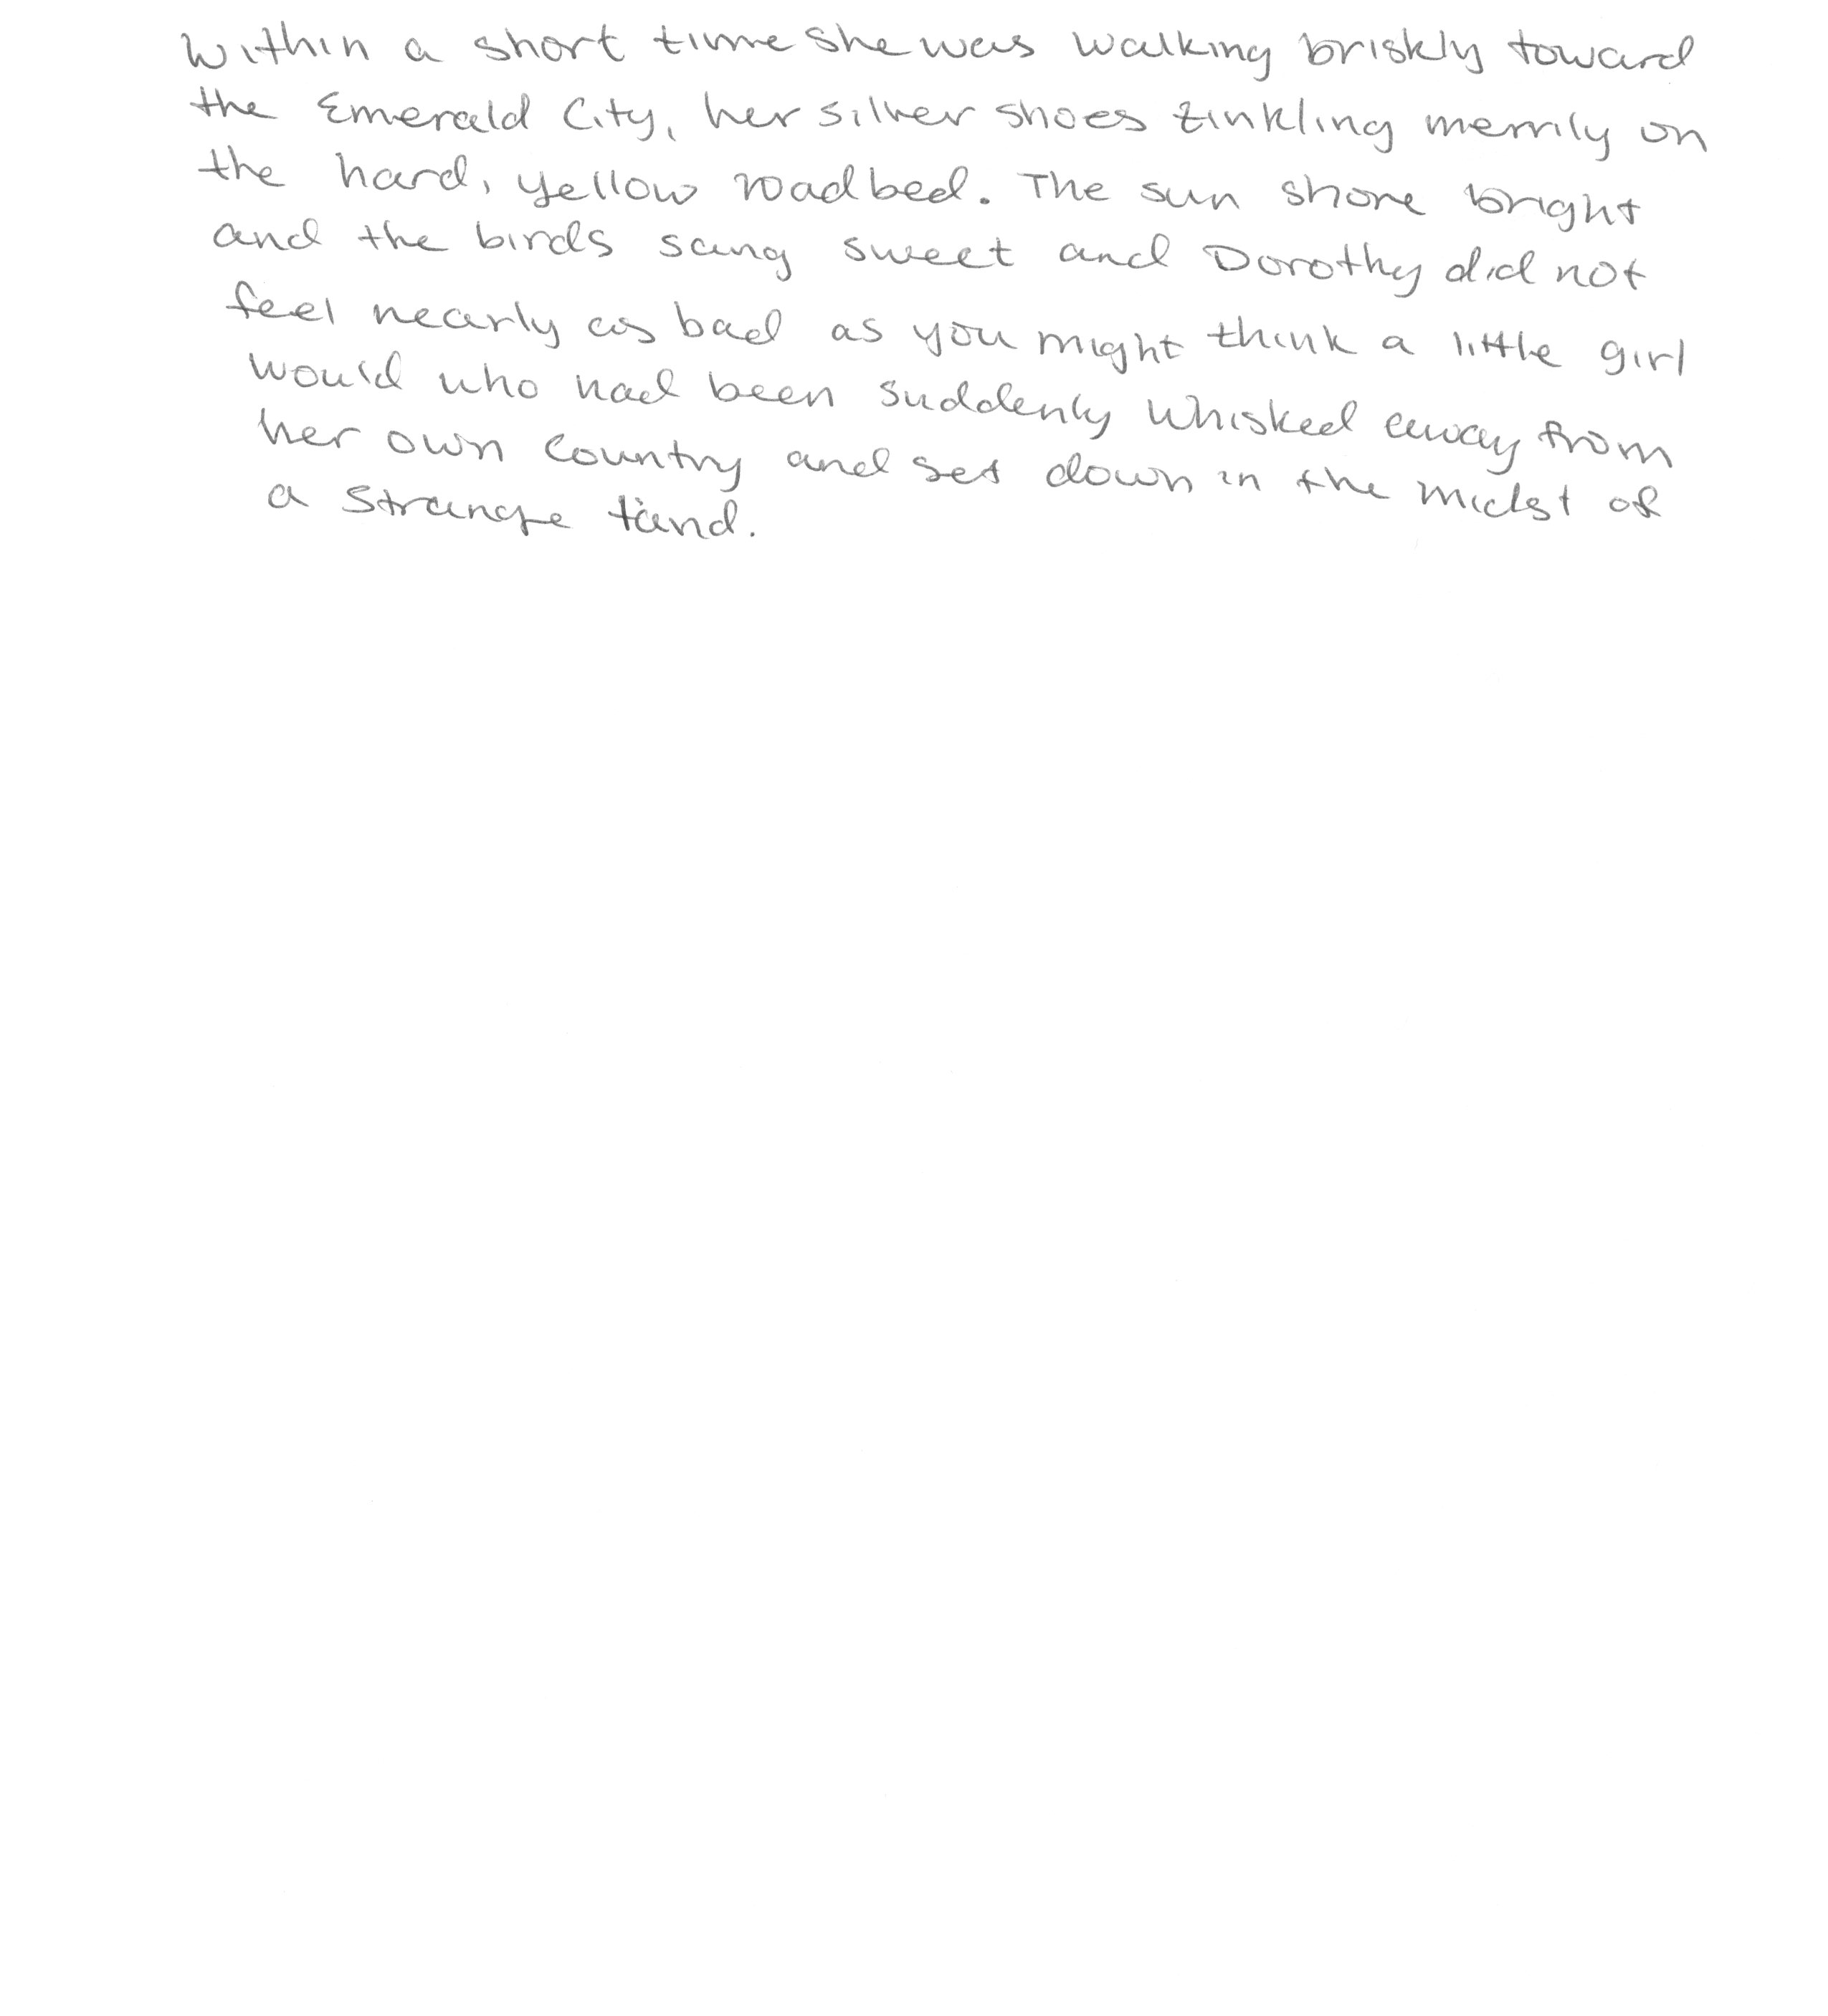 Within a short time she was walking briskly toward
the Emerald City, her silver shoes tinkling merrily on
the hard, yellow roadbed. The sun shone bright
and the birds sang sweet and Dorothy did not
feel nearly as bad as you might think a little girl
would who had been suddenly whisked away from
her own country and set down in the midst of
a strange land.